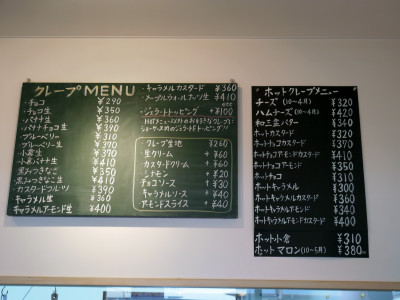 クレープMENU
・チョコ ¥290
・チョコ生 ¥350
・バナナ生 ¥360
・バナナチョコ生 ¥370
・ブルーベリー ¥310
・ブルーベリー生 ¥370
・小倉生 ¥360
・小倉バナナ生 ¥410
・黒みつきなこ ¥350
・黒みつきなこ生 ¥410
・カスタードフルツ ¥390
・キャラメル生 ¥360
・キャラメルアーモンド生 ¥400
・キャラメルカスタード ¥360
・メープルウォールナッツ生 ¥410
・ジェラートトッピング +¥100
クレープ生地 ¥260
生クリーム + ¥60
カスタードクリーム + ¥60
シナモン + ¥20
チョコソース + ¥30
キャラメルソース + ¥40
アーモンドスライス + ¥40
ホットクレープメニュー
チーズ(10〜4月) ¥320
ハムチーズ(10〜4月) ¥420
和三盆バター ¥340
ホットカスタード ¥320
ホットチョコカスタード ¥370
ホットチョコアーモンドカスタード ¥410
ホットチョコアーモンド ¥350
ホットチョコ ¥310
ホットキャラメル ¥300
ホットキャラメルカスタード ¥360
ホットキャラメルアーモンド ¥340
ホットキャラメルアーモンドカスタード ¥400
ホット小倉 ¥310
ホットマロン(10〜5月) ¥380